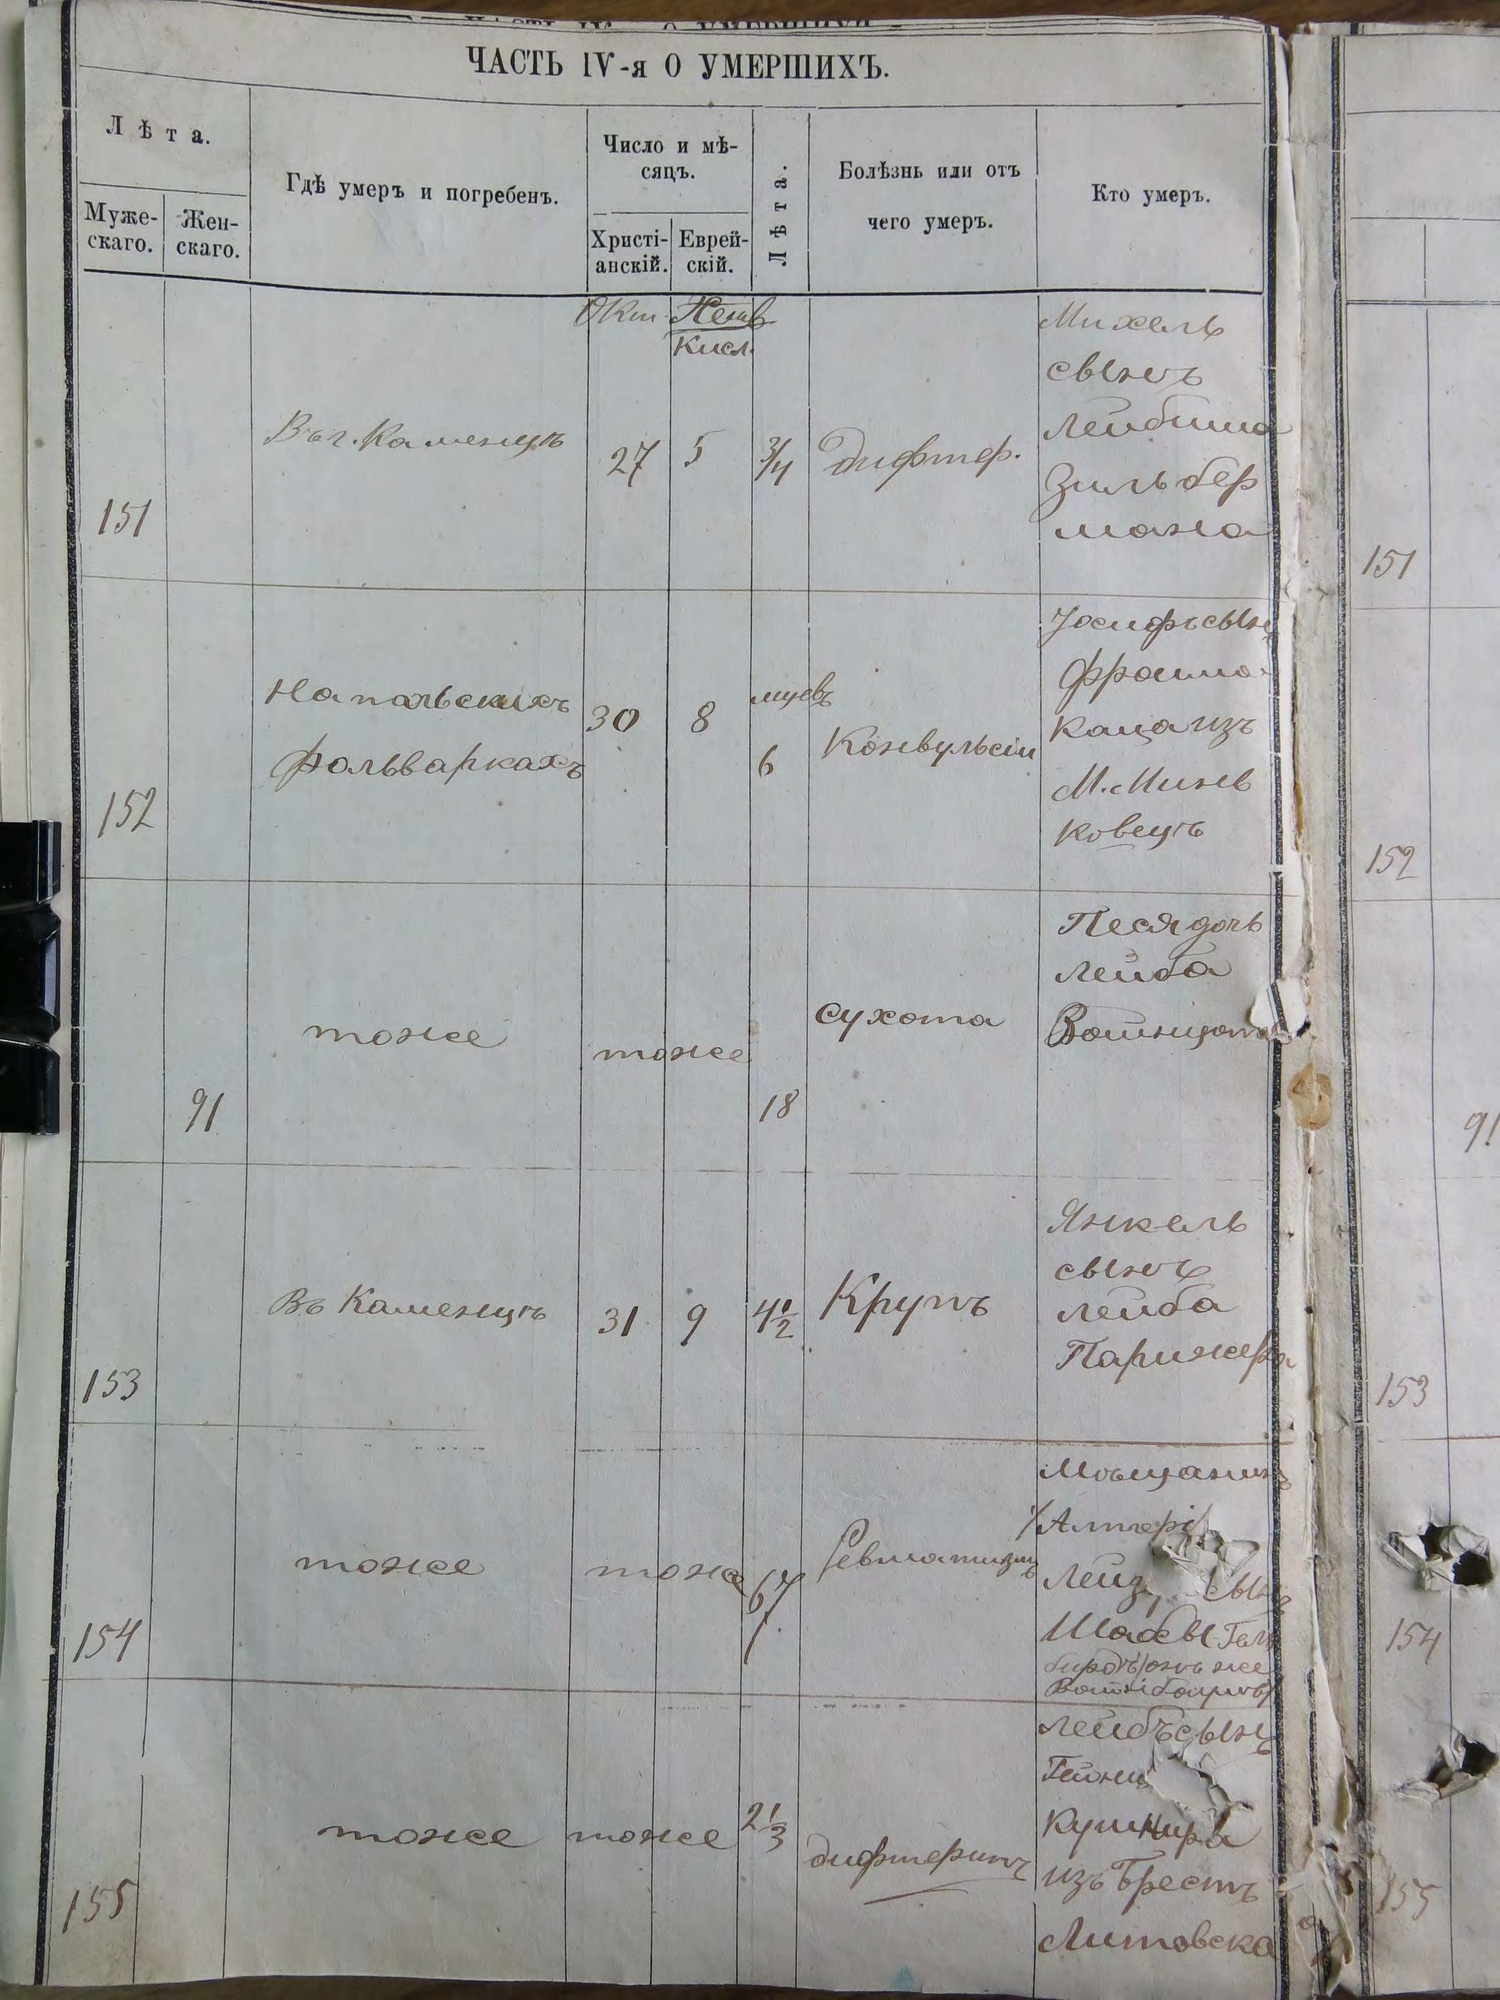 ЧАСТЬ IV-я О УМЕРШИХЪ.
Лѣта.
Муже-
скаго.
Жен-
скаго.
Гдѣ умеръ и погребенъ.
Число и мѣ-
сяцъ.
Христі-
анскій.
Еврей-
скій.
Лѣта.
Болѣзнь или отъ
чего умеръ.
Кто умеръ.
Окт.
Кисл.
151
Въ г. Каменцѣ
27
5
3/4
Дифтер.
Михель
сынъ
Лейбиша
Зильбер
мана
151
152
На польскихъ
фольваркахъ
30
8
мцевъ
6
Конвульсіи
Іосифъ сынъ
Фроима
Каца изъ
М. Минь
ковецъ
152
91
тоже
тоже
18
сухота
Песя дочь
Лейба
91
153
Въ Каменцѣ
31
9
4 1/2
Крупъ
Янкель
сынъ
Лейба
Парижера
153
154
тоже
тоже
67
Ревматизмъ
Мѣщанинъ
сынъ
онъ же
154
155
тоже
тоже
2 1/3
дифтеритъ
Лейбъ сынъ
Кушнира
изъ Брестъ
Литовска
155